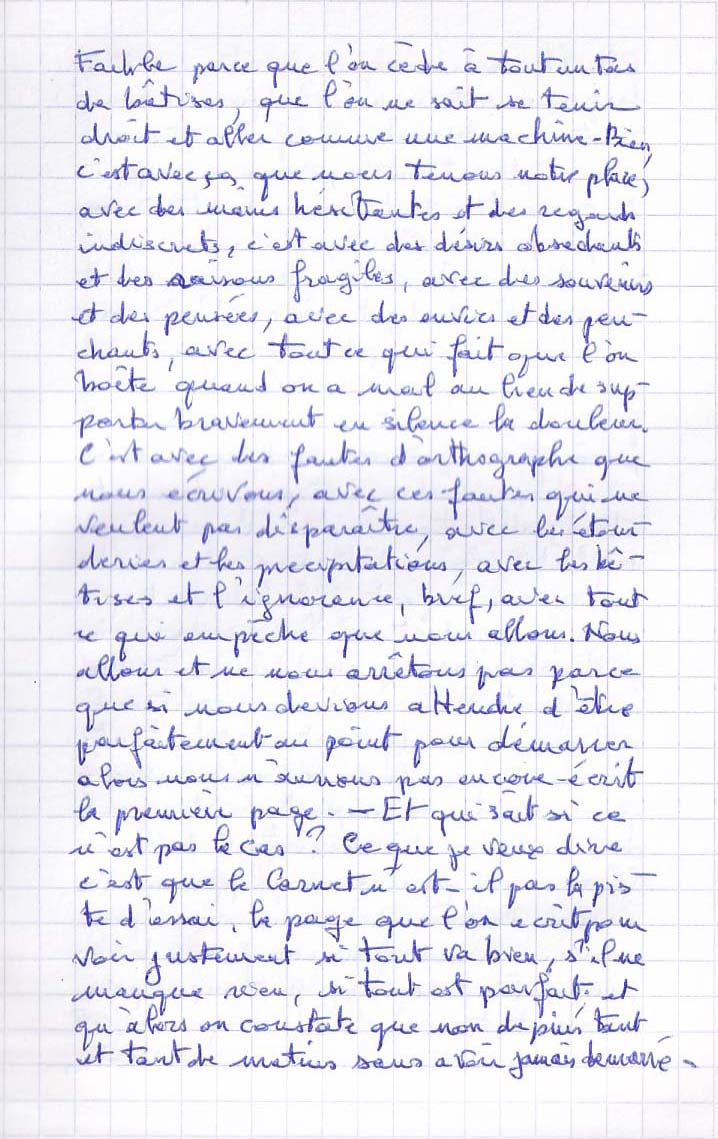 Faible parce que l'on cède à tout un tas
de bêtises, que l'on ne sait se tenir
droit et aller comme une machine - Bien,
c'est avec ça que nous tenons notre place,
avec des mains hésitantes et des regards
indiscrets, c'est avec des désirs obsédants
et des raisons fragiles, avec des souvenirs
et des pensées, avec des envies et des pen-
chants, avec tout ce qui fait que l'on
boête quand on a mal au lieu de sup-
porter bravement en silence la douleur.
C'est avec les fautes d'orthographe que
nous écrivons, avec ces fautes qui ne
veulent pas disparaître, avec les étour-
deries et les precipitations, avec les bê-
tises et l'ignorance, bref, avec tout
ce qui empêche que nous allons. Nous
allons et ne nous arrêtons pas parce
que si nous devions attendre d'être
parfaitement au point pour démarrer
alors nous n'aurions pas encore écrit
la première page. — Et qui sait si ce
n'est pas le cas ? Ce que je veux dire
c'est que le Carnet n'est-il pas la pis-
te d'essai, la page que l'on ecrit pour
voir justement si tout va bien, s'il ne
manque rien, si tout est parfait et
qu'alors on constate que non depuis tant
et tant de matins sans avoir jamais demarré -